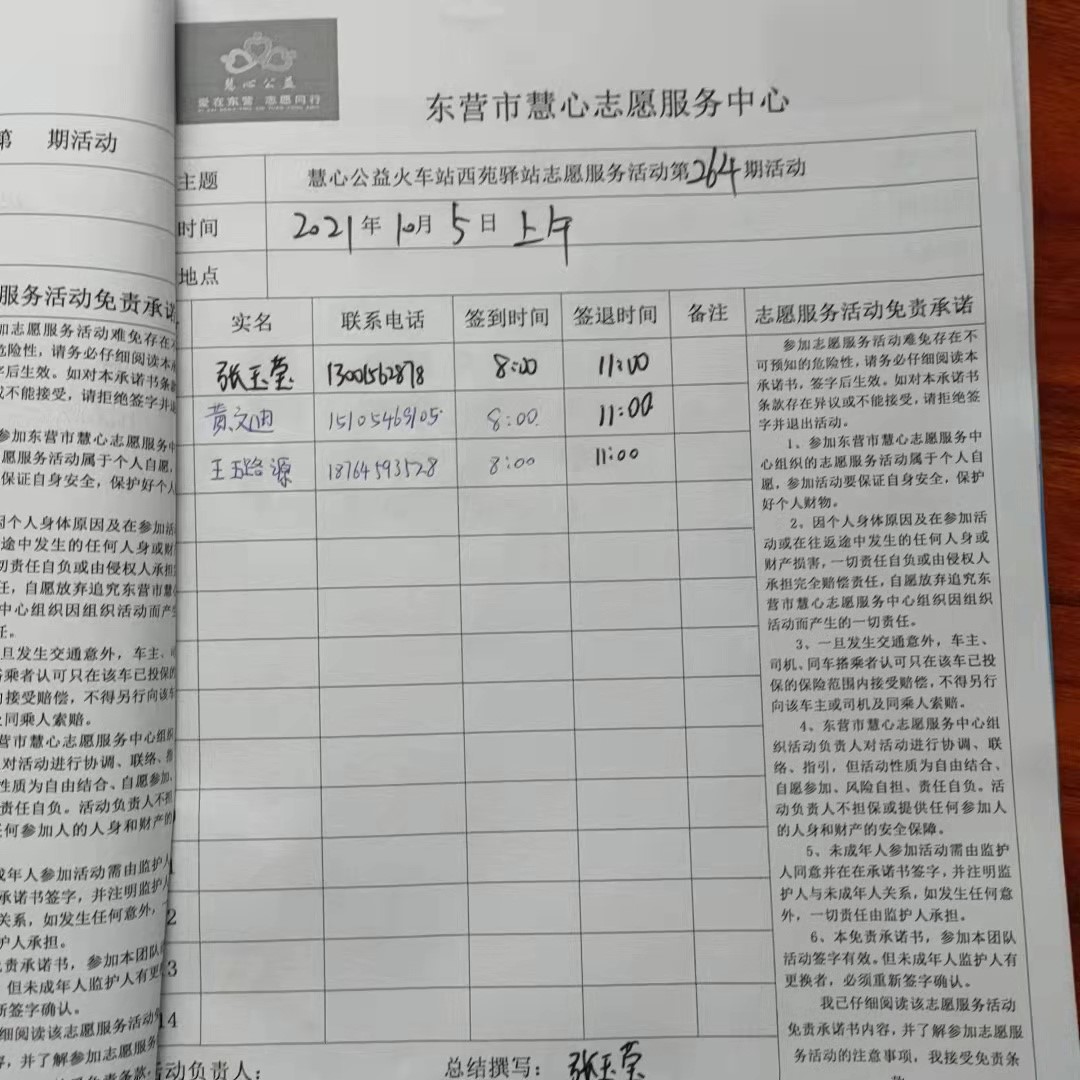 慧心公益
爱在东营 志愿同行
东营市慧心志愿服务中心
第 期活动
主题 慧心公益火车站西苑驿站志愿服务活动第264期活动
时间 2021年10月5日上午
地点
实名 联系电话 签到时间 签退时间 备注 志愿服务活动免责承诺
张玉莹 13001562878 8:00 11:00
黄文迪 15105469105 8:00 11:00
王路源 18764593528 8:00 11:00
参加志愿服务活动难免存在不
可预知的危险性，请务必仔细阅读本
承诺书，签字后生效。如对本承诺书
条款存在异议或不能接受，请拒绝签
字并退出活动。
1、参加东营市慧心志愿服务中
心组织的志愿服务活动属于个人自
愿，参加活动要保证自身安全，保护
好个人财物。
2、因个人身体原因及在参加活
动或在往返途中发生的任何人身或
财产损害，一切责任自负或由侵权人
承担完全赔偿责任，自愿放弃追究东
营市慧心志愿服务中心组织因组织
活动而产生的一切责任。
3、一旦发生交通意外，车主、
司机、同车搭乘者认可只在该车已投
保的保险范围内接受赔偿，不得另行
向该车主或司机及同乘人索赔。
4、东营市慧心志愿服务中心组
织活动负责人对活动进行协调、联
络、指引，但活动性质为自由结合、
自愿参加、风险自担、责任自负。活
动负责人不担保或提供任何参加人
的人身和财产的安全保障。
5、未成年人参加活动需由监护
人同意并在在承诺书签字，并注明监
护人与未成年人关系，如发生任何意
外，一切责任由监护人承担。
6、本免责承诺书，参加本团队
活动签字有效。但未成年人监护人有
更换者，必须重新签字确认。
我已仔细阅读该志愿服务活动
免责承诺书内容，并了解参加志愿服
务活动的注意事项，我接受免责条
2
3
14
活动负责人： 总结撰写：张玉莹
服务活动免责承诺
加志愿服务活动难免存在不
危险性，请务必仔细阅读本
字后生效。如对本承诺书条
或不能接受，请拒绝签字并退
参加东营市慧心志愿服务中
愿服务活动属于个人自愿，
保证自身安全，保护好个人
因个人身体原因及在参加活
途中发生的任何人身或财
切责任自负或由侵权人承担
任，自愿放弃追究东营市慧
中心组织因组织活动而产生
任。
旦发生交通意外，车主、司
搭乘者认可只在该车已投保的
内接受赔偿，不得另行向该车
及同乘人索赔。
营市慧心志愿服务中心组织
对活动进行协调、联络、指
性质为自由结合、自愿参加、
责任自负。活动负责人不担
任何参加人的人身和财产的
成年人参加活动需由监护人
承诺书签字，并注明监护人
关系，如发生任何意外，
护人承担。
免责承诺书，参加本团队
但未成年人监护人有更
新签字确认。
细阅读该志愿服务活动
容，并了解参加志愿服务